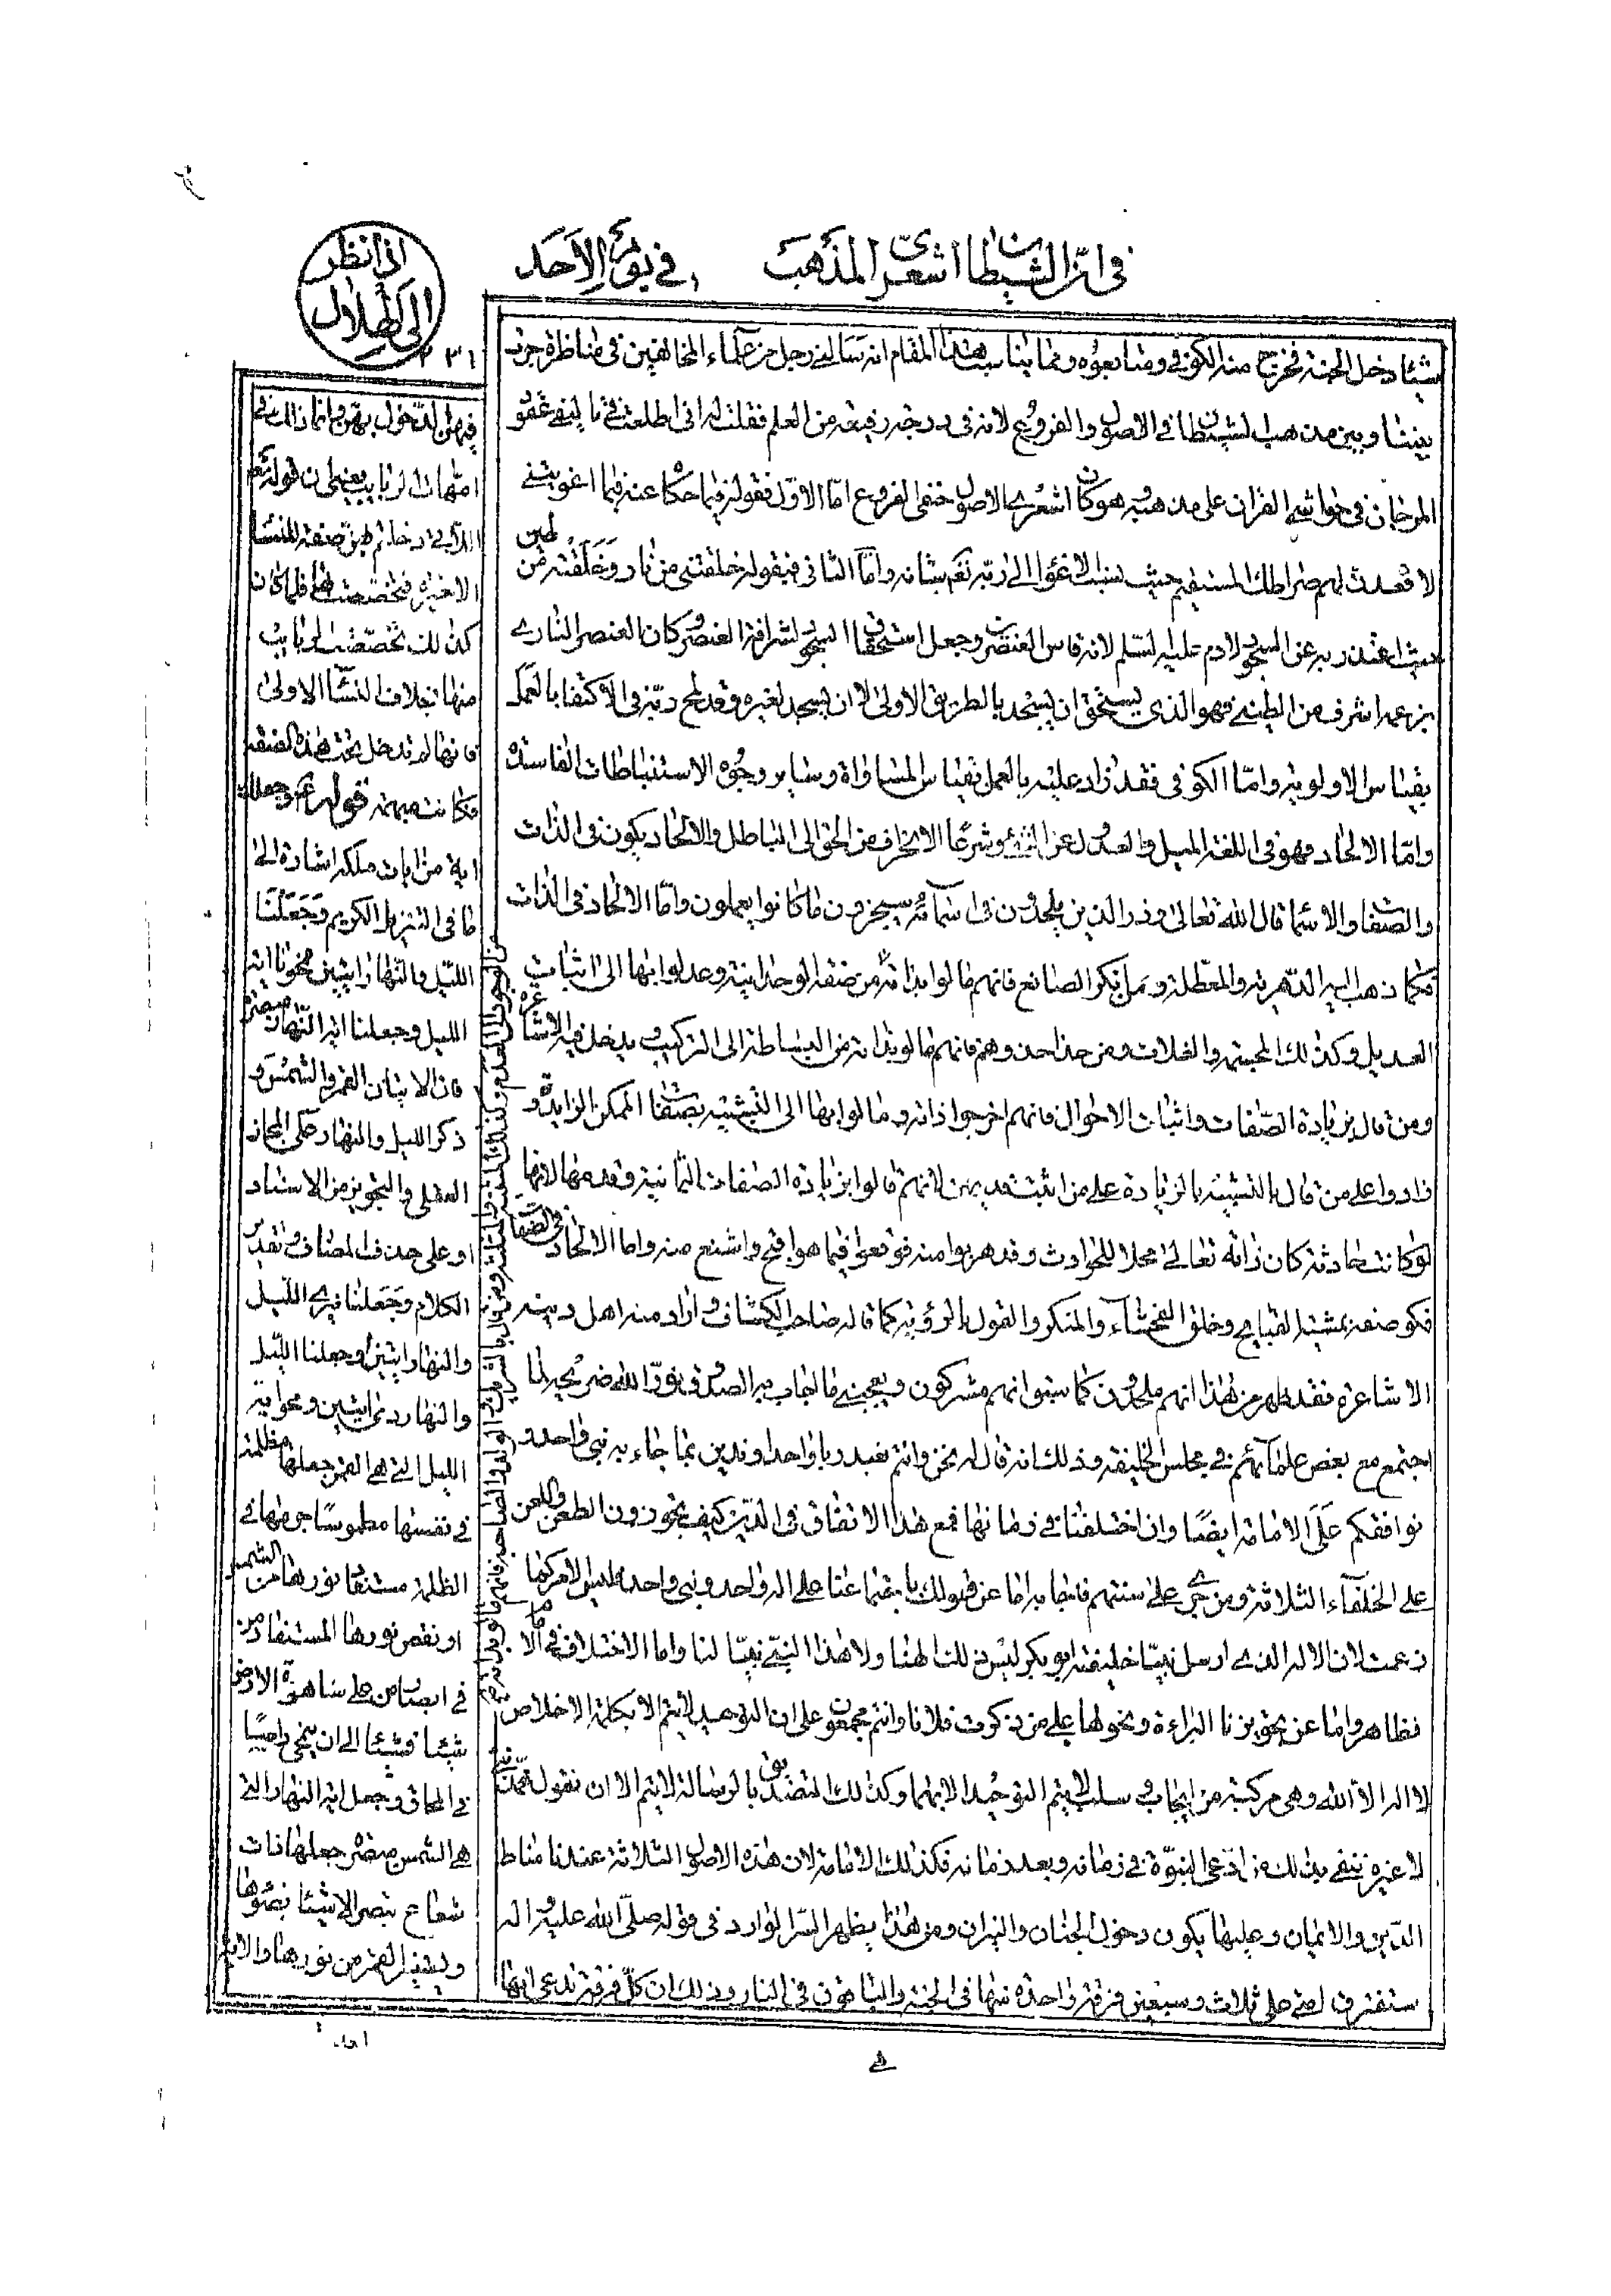 في ان الشيطان اشعرى المذهب في يوم الاحد
انى انظر
الى الهلال
٢٣١
شيئا دخل الجنة فخرج منه الكوفى ومتابعوه ومما يناسب هذا المقام انه سالنى رجل من علماء المخالفين فى مناظرة جرت
بيننا وبين مذهب الشيطان فى الاصول والفروع لانه فى درجة رفيعة من العلم فقلت له انى اطلعت فى تاليفى عقود
المرجان فى حواشى القران على مذهبه وهو كان اشعرى الاصول حنفى الفروع اما الاول فقوله فيما حكاه عنه فيما اغويتنى
لاقعدن لهم صراطك المستقيم حيث نسب الاغواء الى ربه تعم شانه واما الثانى فبقوله خلقتنى من نار وخلقته من طين
عند ربه عن السجود لادم عليه السلم لانه قاس العنصرين وجعل استحقاق السجود لشرافة العنصر وكان العنصر النارى
بزعمه اشرف من الطينى فهو الذى يستحق ان يسجد بالطريق الاولى لا ان يسجد لغيره وقد لمح ربه فى الاكتفا بالعمل
بقياس الاولوية واما الكوفى فقد زاد عليه بالعمل بقياس المساواة وساير وجوه الاستنباطات الفاسدة
واما الالحاد فهو فى اللغة الميل والعدول عن الشئ وشرعا الانحراف من الحق الى الباطل والالحاد يكون فى الذات
والصفات والاسما قال الله تعالى وذر الذين يلحدون فى اسمائه سيجزون ما كانوا يعملون واما الالحاد فى الذات
فكما ذهب اليه الدهرية والمعطلة ومن ينكر الصانع فانهم مالوا بذاته من صفة الوحدانية وعدلوا بها الى اثبات
العديل وكذلك المجسمة والغلات ومن حذا حذوهم فانهم مالو بذاته من البساطة الى التركيب ويدخل فيه الاشاعرة
ومن قال بزيادة الصفات واثبات الاحوال فانهم اخرجوا ذاته ومالوا بها الى التشبيه بصفات الممكن الزايدة و
زادوا على من قال بالتشبيه بالزيادة على من اثبت قديمين لانهم قالوا بزيادة الصفات الثمانية وقدمها لانها
لو كانت حادثة كان ذاته تعالى محلا للحوادث وقد هربوا منه فوقعوا فيما هو اقبح واشنع منه واما الالحاد فى الصفات
فكوصفه بمشية القبايح وخلق الفحشاء والمنكر والقول بالرؤية كما قاله صاحب الكشاف واراد منه اهل دينه
الاشاعرة فقد ظهر من هذا انهم ملحدون كما سبق انهم مشركون ويعجبنى ما اجاب به الصدوق نور الله ضريحه لما
اجتمع مع بعض علمائهم فى مجلس الخليفة وذلك انه قال له نحن وانتم نعبد ربا واحدا وندين بما جاء به نبى واحد
نوافقكم على الامامة ايضا وان اختلفنا فى زمانها فمع هذا الاتفاق فى الدين كيف تجوزون الطعن واللعن
على الخلفاء الثلاثة ومن جرى على سنتهم فاجابه اما عن قولك باجتماعنا على اله واحد ونبى واحد فليس الامر كما
زعمت لان الاله الذى ارسل نبيا خليفته ابو بكر ليس ذلك الهنا ولا هذا النبى نبيا لنا واما الاختلاف فى الامامة
فظاهر واما عن تجويزنا البراءة ونحوها على من ذكرت فلانا وانتم مجمعون على ان التوحيد لا يتم الا بكلمة الاخلاص
لا اله الا الله وهى مركبة من ايجاب وسلب لا يتم التوحيد الا بهما وكذلك التصديق بالرسالة لا يتم الا ان نقول محمد نبى
لا غيره ننفى بذلك من ادعى النبوة فى زمانه وبعد زمانه فكذلك الامامة لان هذه الاصول الثلاثة عندنا مناط
الدين والايمان وعليها يكون دخول الجنان والنيران ومن هذا يظهر السر الوارد فى قوله صلى الله عليه واله
ستفترق امتى على ثلاث وسبعين فرقة واحدة منها فى الجنة والباقون فى النار وذلك ان كل فرقة تدعى انها
فيهن الدخول بهن وانما ذلك فى
امهات الربايب بمعنى ان قوله تعم
اللاتى دخلتم بهن صفة للنسا
الاخيرة فتخصصت بها فلما كان
كذلك تخصصت الربايب
منها بخلاف النسا الاولى
فانها لم تدخل تحت هذه الصفة
فكانت مبهمة قوله وجعلك
اية من ايات ملكه اشارة الى
ما فى التنزيل الكريم وجعلنا
الليل والنهار ايتين فمحونا اية
الليل وجعلنا اية النهار مبصرة
فان الايتان القمر والشمس و
ذكر الليل والنهار على المجاز
العقلى والتجويز من الاسناد
او على حذف المضاف وتقدير
الكلام وجعلنا نيرى الليل
والنهار ايتين او وجعلنا الليل
والنهار ذوى ايتين ومحو اية
الليل التى هى القمر جعلها مظلمة
فى نفسها مطموسا جرمها فى
الظلمة مستفاد نورها من الشمس
او نقص نورها المستفاد من
فى ابصار من على ساهرة الارض
شيئا فشيئا الى ان يمحى
فى المحاق وجعل اية النهار التى
هى الشمس مبصرة جعلها ذات
شعاع تبصر الاشيا بضوئها